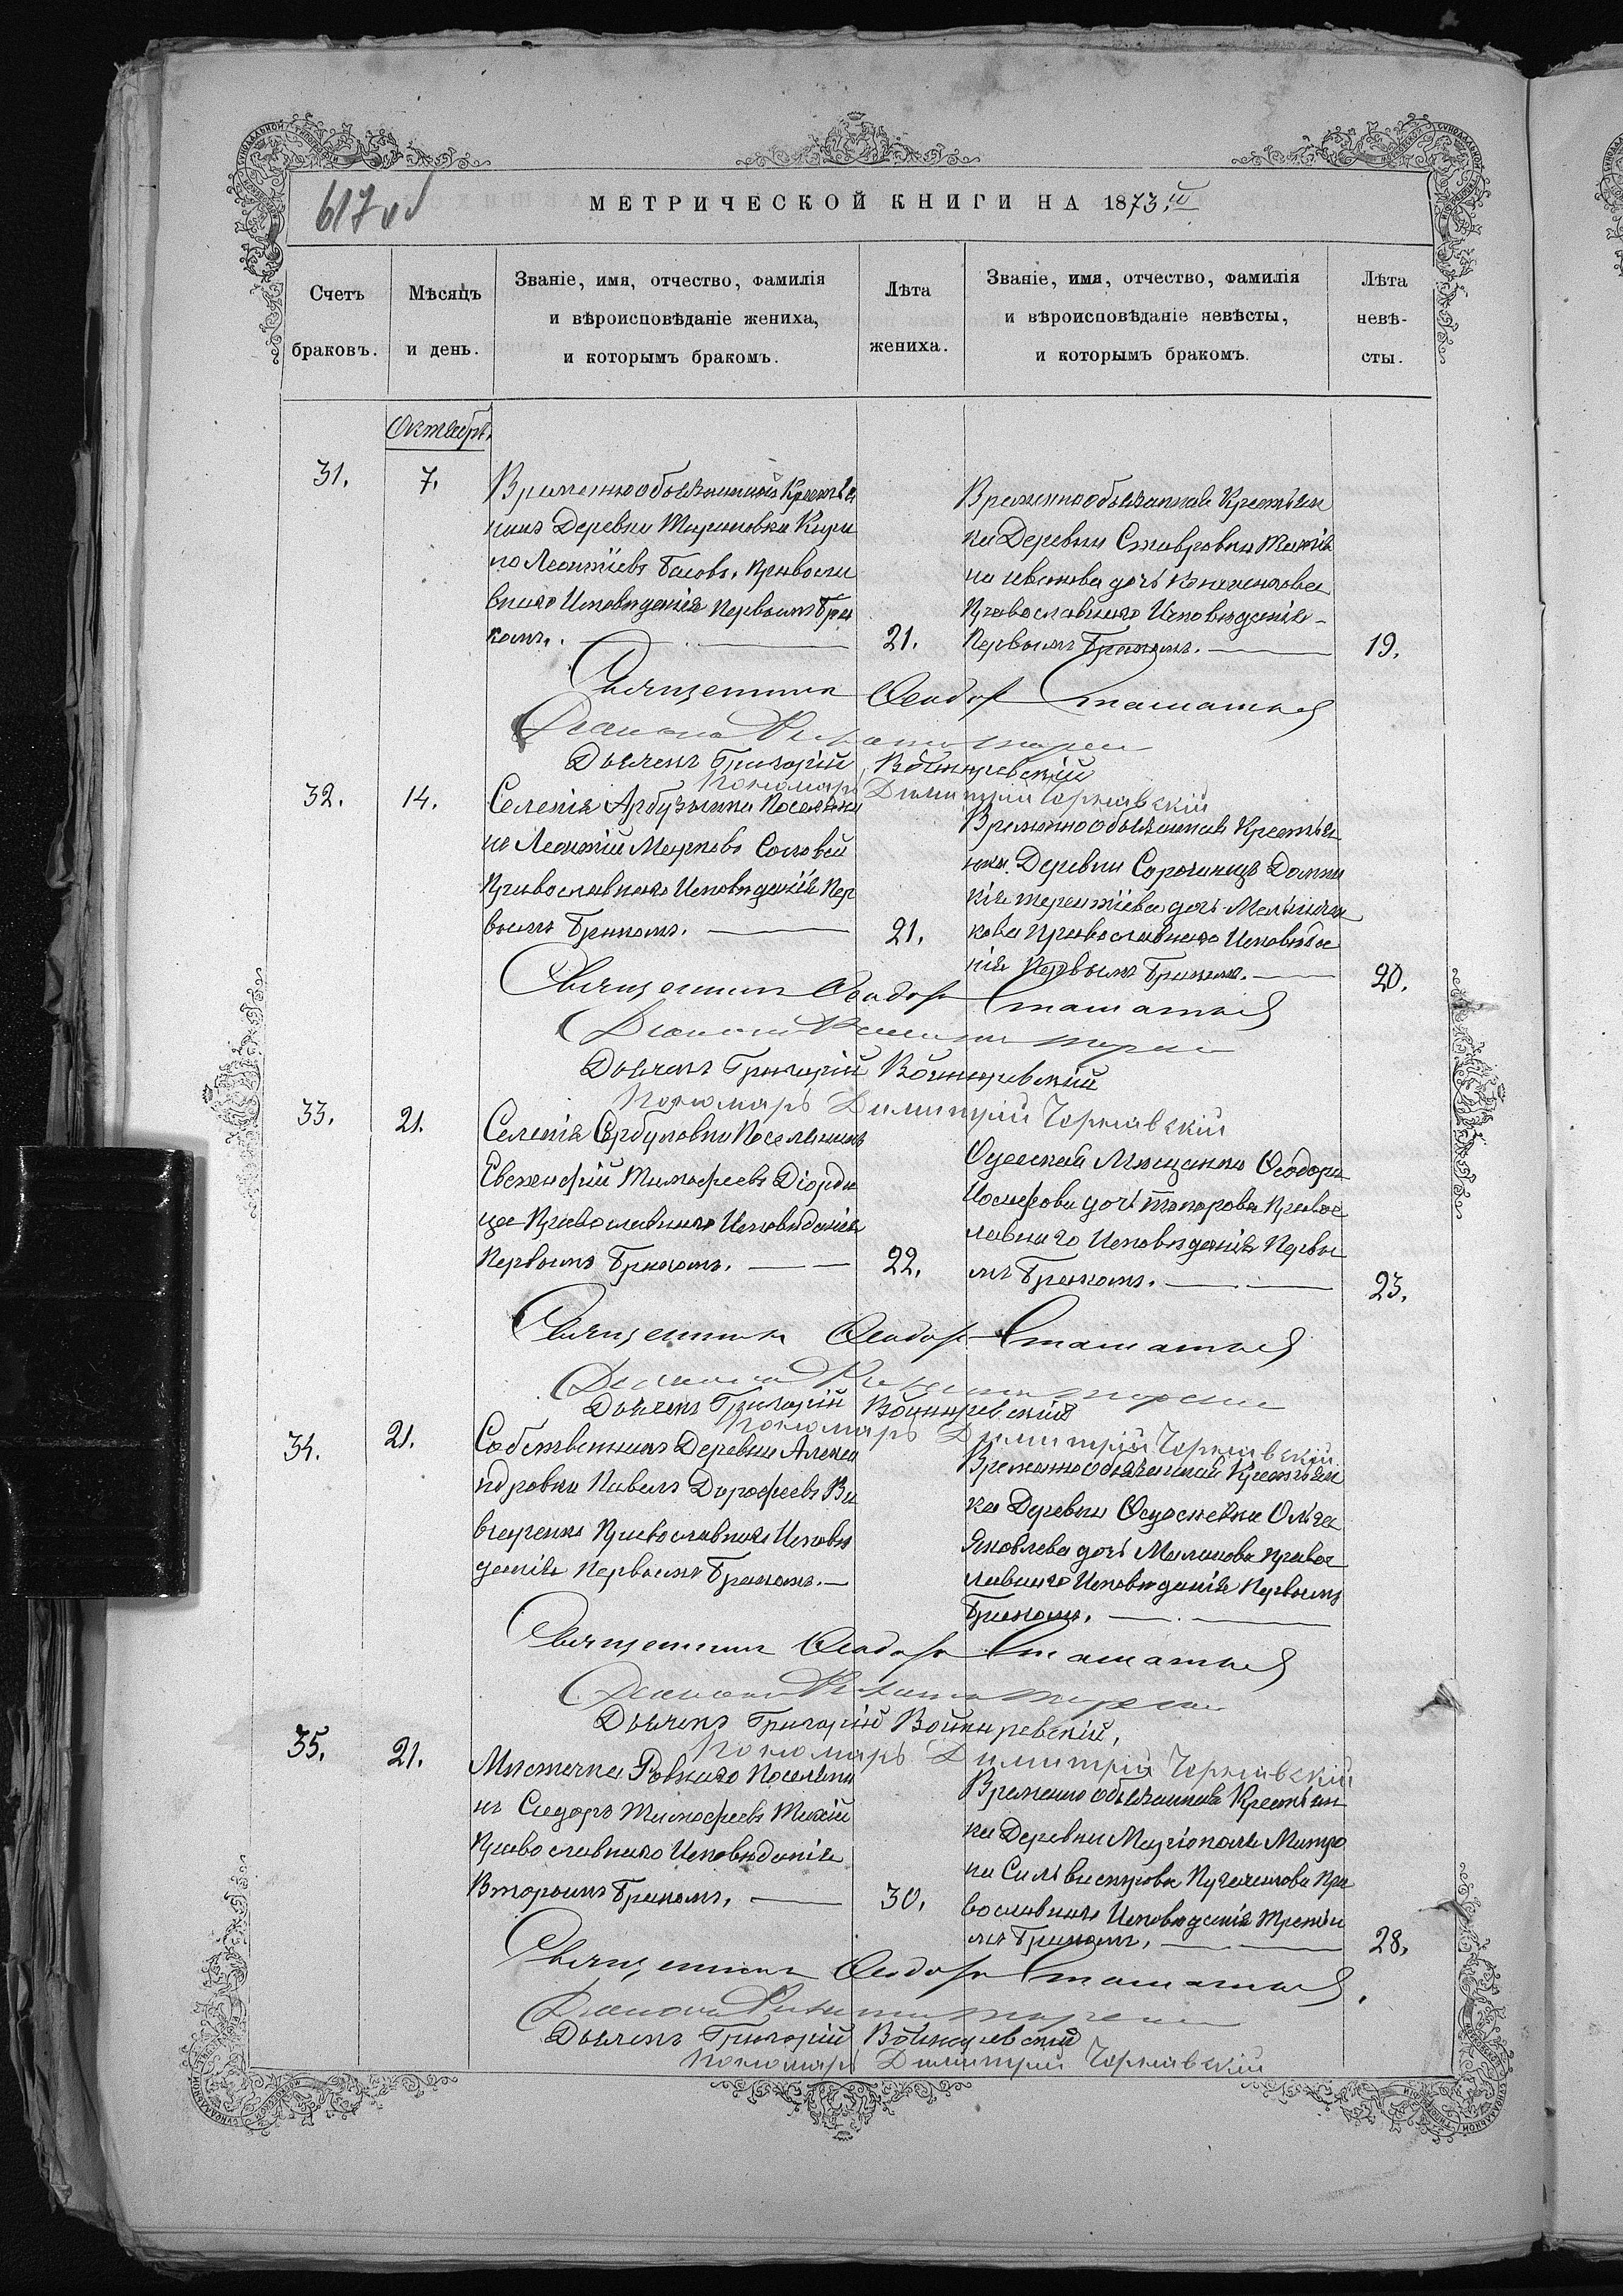 617 об
МЕТРИЧЕСКОЙ КНИГИ НА 1873.й
Счетъ браковъ.
Мѣсяцъ и день.
Званіе, имя, отчество, фамилія
и вѣроисповѣданіе жениха,
и которымъ бракомъ.
Лѣта жениха.
Званіе, имя, отчество, фамилія
и вѣроисповѣданіе невѣсты,
и которымъ бракомъ.
Лѣта невѣ-
сты.
Октябрь.
31.
7.
Временнообязанный Крестья
нинъ Деревни Мариновки Кири
ло Леонтіевъ Басовъ, Правосла
внаго Исповѣданія Первымъ Бра
комъ.
21.
Временнообязанная Крестьян
ка Деревни Ставровки
на Иванова дочь
Православнаго Исповѣданія
Первымъ Бракомъ.
19.
Священникъ Ѳеодоръ
Діаконъ
Дьячекъ Григорій Войнаревскій
Пономарь Димитрій Чернявскій
32.
14.
Селенія Арбузынки Поселяни
нъ Леонтій Марковъ Соловей
Православнаго Исповѣданія Пер
вымъ Бракомъ.
21.
Временнообязанная Крестьян
ка Деревни Сорочинцъ Домни
кія Терентіева дочь Мельнич
кова Православнаго Исповѣда
нія Первымъ Бракомъ.
20.
Священникъ Ѳеодоръ
Діаконъ
Дьячекъ Григорій Войнаревскій
Пономарь Димитрій Чернявскій
33.
21.
Селенія Сербуловки Поселянинъ
Евгенфій Тимофеевъ Діорди
ца Православнаго Исповѣданія
Первымъ Бракомъ.
22.
Одесская Мѣщанка Ѳеодора
Іосифова дочь Топорова Правос
лавнаго Исповѣданія Первы
мъ Бракомъ.
23.
Священникъ Ѳеодоръ
Діаконъ
Дьячекъ Григорій Войнаревскій
Пономарь Димитрій Чернявскій
34.
21.
Собственникъ Деревни Алекса
ндровки Павелъ Дорофеевъ
Православнаго Исповѣ
данія Первымъ Бракомъ.
Временнообязанная Крестьян
ка Деревни Ѳедосѣевки Ольга
Яковлева дочь Маликова Правос
лавнаго Исповѣданія Первымъ
Бракомъ.
Священникъ Ѳеодоръ
Діаконъ
Дьячекъ Григорій Войнаревскій.
Пономарь Димитрій Чернявскій
35.
21.
Мѣстечка Ровнаго Поселяни
нъ Сидоръ Тимофеевъ Тихій
Православнаго Исповѣданія
Вторымъ Бракомъ.
30.
Временно обязанная Крестьян
ка Деревни Маріополя Матро
на Сильвестрова Пра
вославнаго Исповѣданія Третьи
мъ Бракомъ.
28.
Священникъ Ѳеодоръ
Діаконъ
Дьячекъ Григорій Войнаревскій
Пономарь Димитрій Чернявскій